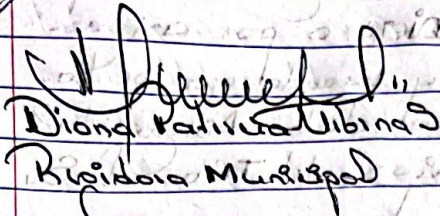 Diana Patricia Urbina S
Regidora Municipal